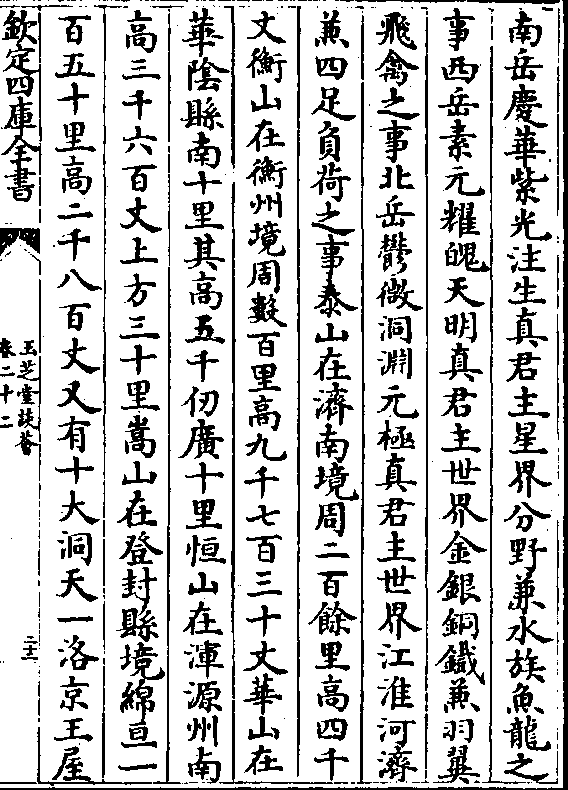 南岳慶華紫光注生真君主星界分野兼水族魚龍之
事西岳素元耀魄天明真君主世界金銀銅鐵兼羽翼
飛禽之事北岳鬱微洞淵元極真君主世界江淮河濟
兼四足負荷之事泰山在濟南境周二百餘里高四千
丈衡山在衡州境周數百里高九千七百三十丈華山在
華陰縣南十里其高五千仞廣十里恒山在渾源州南
高三千六百丈上方三十里嵩山在登封縣境綿亘一
百五十里高二千八百丈又有十大洞天一洛京王屋
欽定四庫全書
玉芝堂談薈
卷二十二
二十二